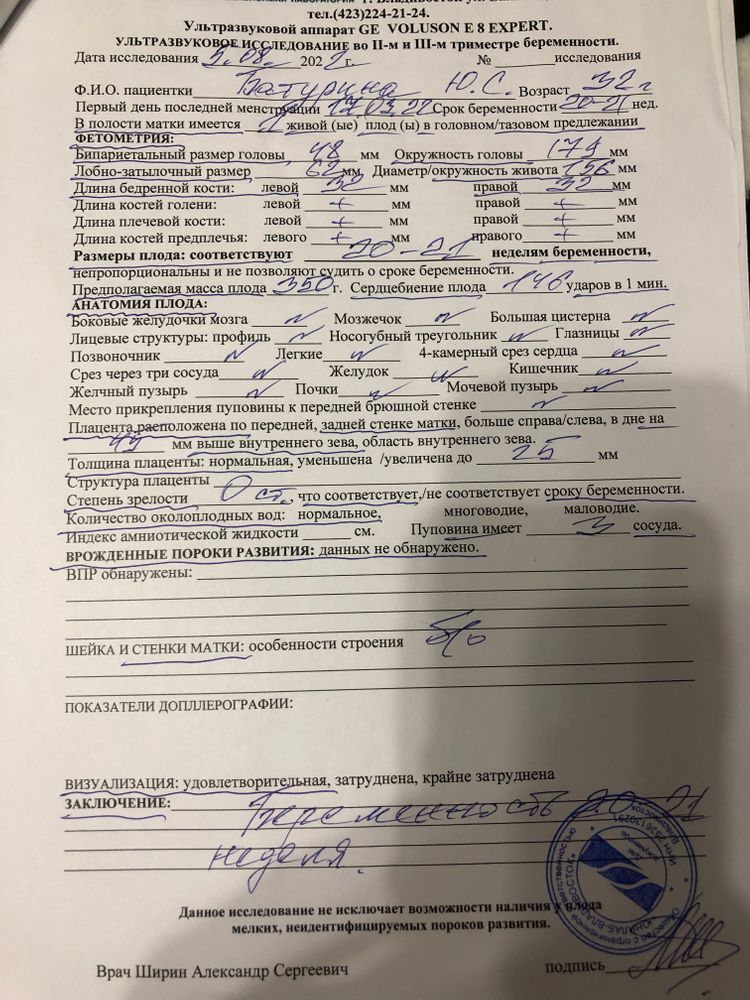 тел.(423)224-21-24.
Ультразвуковой аппарат GE VOLUSON E 8 EXPERT.
УЛЬТРАЗВУКОВОЕ ИССЛЕДОВАНИЕ во II-м и III-м триместре беременности.
Дата исследования 5.08. 2022 г. № исследования
Ф.И.О. пациентки Батурина Ю.С. Возраст 32 г
Первый день последней менструации 17.03.22 Срок беременности 20-21 нед.
В полости матки имеется 1 живой (ые) плод (ы) в головном/тазовом предлежании
ФЕТОМЕТРИЯ:
Бипариетальный размер головы 48 мм Окружность головы 174 мм
Лобно-затылочный размер 62 мм, Диаметр/окружность живота 156 мм
Длина бедренной кости: левой 32 мм правой 32 мм
Длина костей голени: левой + мм правой + мм
Длина плечевой кости: левой + мм правой + мм
Длина костей предплечья: левого + мм правого + мм
Размеры плода: соответствуют 20-21 неделям беременности,
непропорциональны и не позволяют судить о сроке беременности.
Предполагаемая масса плода 350 г. Сердцебиение плода 146 ударов в 1 мин.
АНАТОМИЯ ПЛОДА:
Боковые желудочки мозга N Мозжечок N Большая цистерна N
Лицевые структуры: профиль N Носогубный треугольник N Глазницы N
Позвоночник N Легкие N 4-камерный срез сердца N
Срез через три сосуда N Желудок N Кишечник N
Желчный пузырь N Почки N Мочевой пузырь N
Место прикрепления пуповины к передней брюшной стенке N
Плацента расположена по передней, задней стенке матки, больше справа/слева, в дне на
мм выше внутреннего зева, область внутреннего зева.
Толщина плаценты: нормальная, уменьшена /увеличена до 25 мм
Структура плаценты
Степень зрелости 0 ст., что соответствует,/не соответствует сроку беременности.
Количество околоплодных вод: нормальное, многоводие, маловодие.
Индекс амниотической жидкости см. Пуповина имеет 3 сосуда.
ВРОЖДЕННЫЕ ПОРОКИ РАЗВИТИЯ: данных не обнаружено.
ВПР обнаружены:
ШЕЙКА И СТЕНКИ МАТКИ: особенности строения б/о
ПОКАЗАТЕЛИ ДОПЛЛЕРОГРАФИИ:
ВИЗУАЛИЗАЦИЯ: удовлетворительная, затруднена, крайне затруднена
ЗАКЛЮЧЕНИЕ: Беременность 20-21
неделя.
Данное исследование не исключает возможности наличия у плода
мелких, неидентифицируемых пороков развития.
Врач Ширин Александр Сергеевич подпись